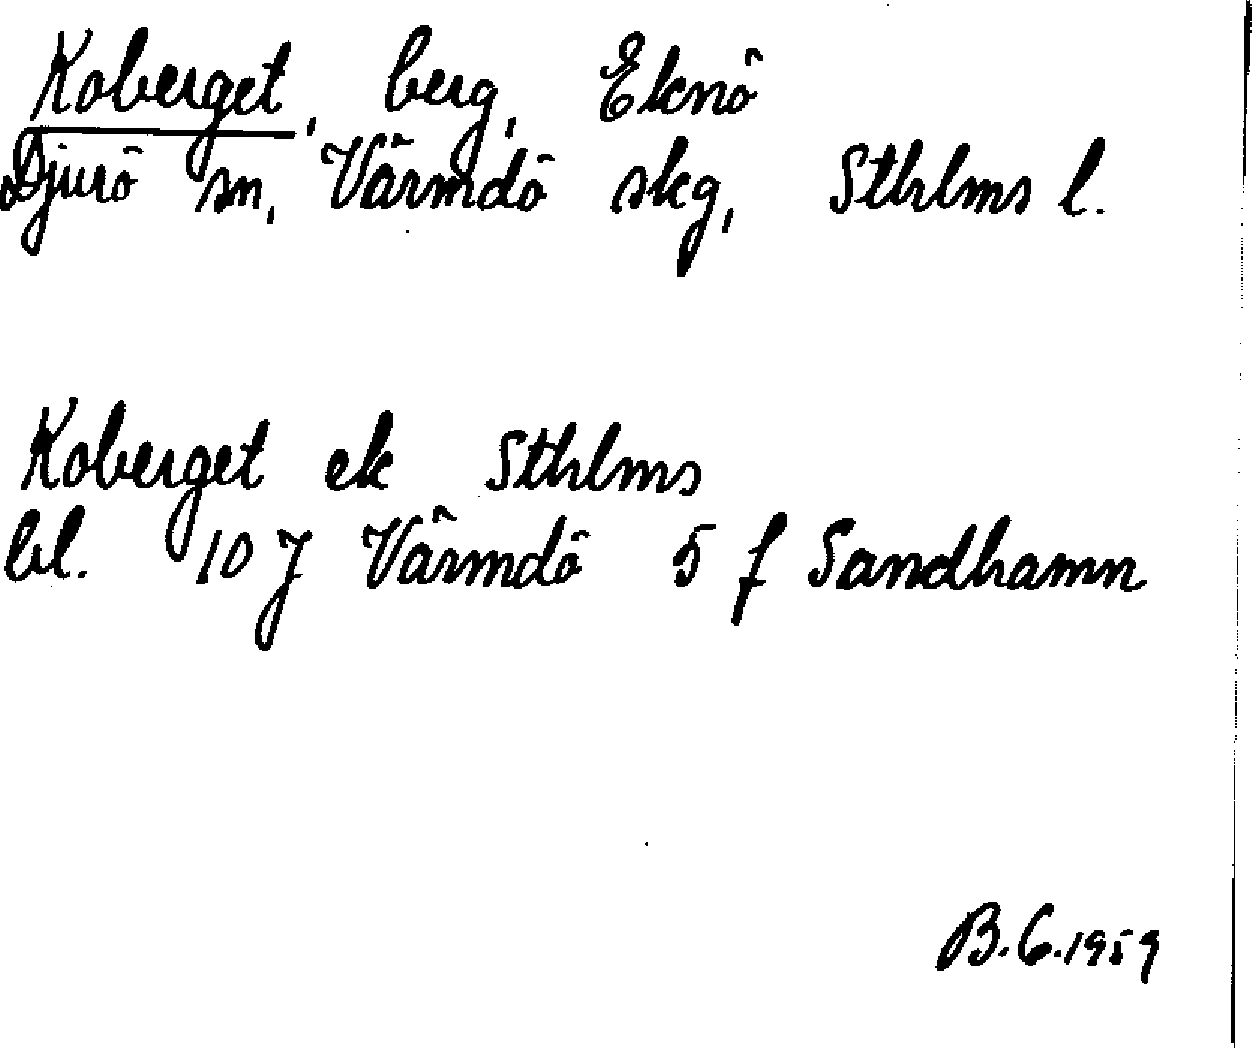 Koberget, berg, Eknö
Djurö sn, Värmdö skg, Sthlms l.
Koberget ek Sthlms
bl. 10 J Värmdö 5 f Sandhamn
B.G.1959